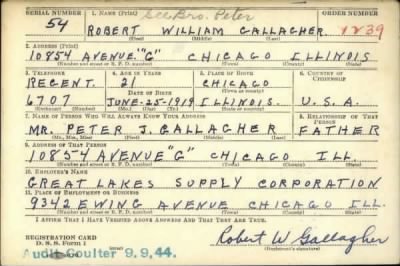 SERIAL NUMBER 1. NAME (Print) See Bro. Peter ORDER NUMBER
54 ROBERT WILLIAM GALLAGHER 1239
(First) (Middle) (Last)
2. ADDRESS (Print)
10854 AVENUE "G" CHICAGO ILLINOIS
(Number and street or R. F. D. number) (Town) (County) (State)
3. TELEPHONE 4. AGE IN YEARS 5. PLACE OF BIRTH 6. COUNTRY OF CITIZENSHIP
REGENT. 21 CHICAGO
DATE OF BIRTH
6707 JUNE-25-1919 ILLINOIS. U.S.A.
(Exchange) (Number) (Mo.) (Day) (Yr.) (State or country)
7. NAME OF PERSON WHO WILL ALWAYS KNOW YOUR ADDRESS 8. RELATIONSHIP OF THAT PERSON
MR. PETER J. GALLAGHER FATHER
(Mr., Mrs., Miss) (First) (Middle) (Last)
9. ADDRESS OF THAT PERSON
10854 AVENUE "G" CHICAGO ILL.
(Number and street or R. F. D. number) (Town) (County) (State)
10. EMPLOYER'S NAME
GREAT LAKES SUPPLY CORPORATION
11. PLACE OF EMPLOYMENT OR BUSINESS
9342 EWING AVENUE CHICAGO ILL.
(Number and street or R. F. D. number) (Town) (County) (State)
I AFFIRM THAT I HAVE VERIFIED ABOVE ANSWERS AND THAT THEY ARE TRUE.
REGISTRATION CARD
D. S. S. Form 1 (over) Robert W Gallagher
(Registrant's signature)
Audit Coulter 9.9.44.